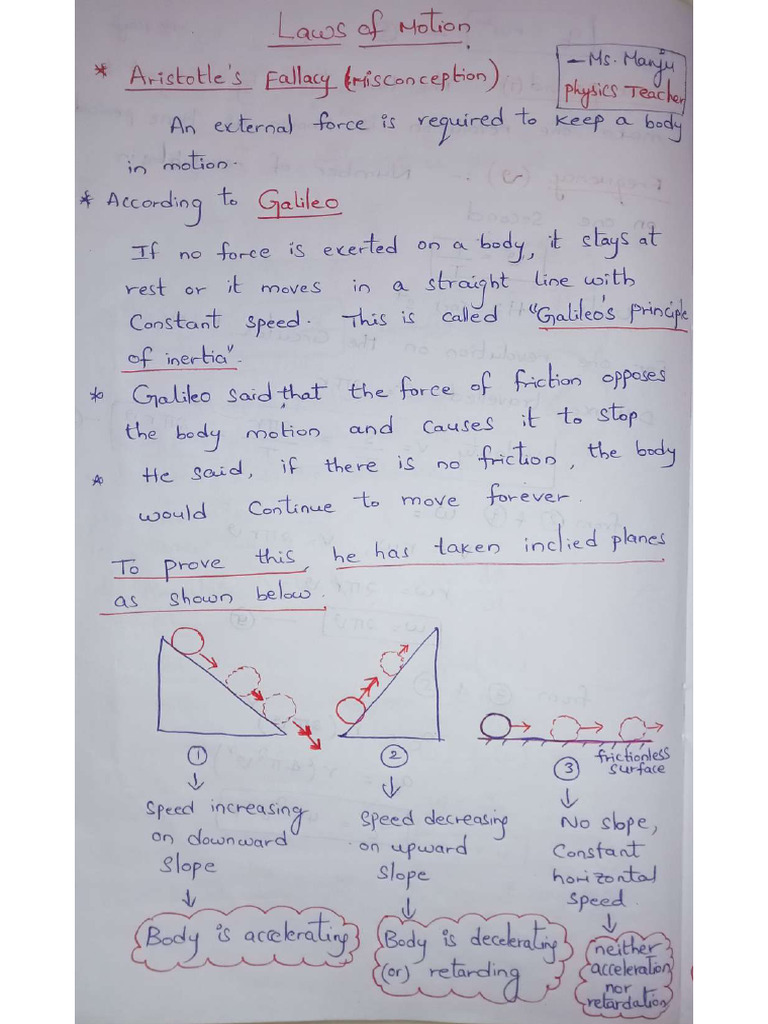 Laws of Motion
* Aristotle's Fallacy (Misconception)
- Ms. Manju
Physics Teacher
An external force is required to keep a body
in motion.
* According to Galileo
If no force is exerted on a body, it stays at
rest or it moves in a straight line with
Constant speed. This is called "Galileo's principle
of inertia".
* Galileo said that the force of friction opposes
the body motion and causes it to stop
* He said, if there is no friction, the body
would Continue to move forever.
To prove this, he has taken inclied planes
as shown below.
frictionless
surface
1
2
3
Speed increasing
on downward
Slope
Speed decreasing
on upward
Slope
No slope,
Constant
horizontal
Speed.
Body is accelerating
Body is decelerating
(or) retarding
neither
acceleration
nor
retardation